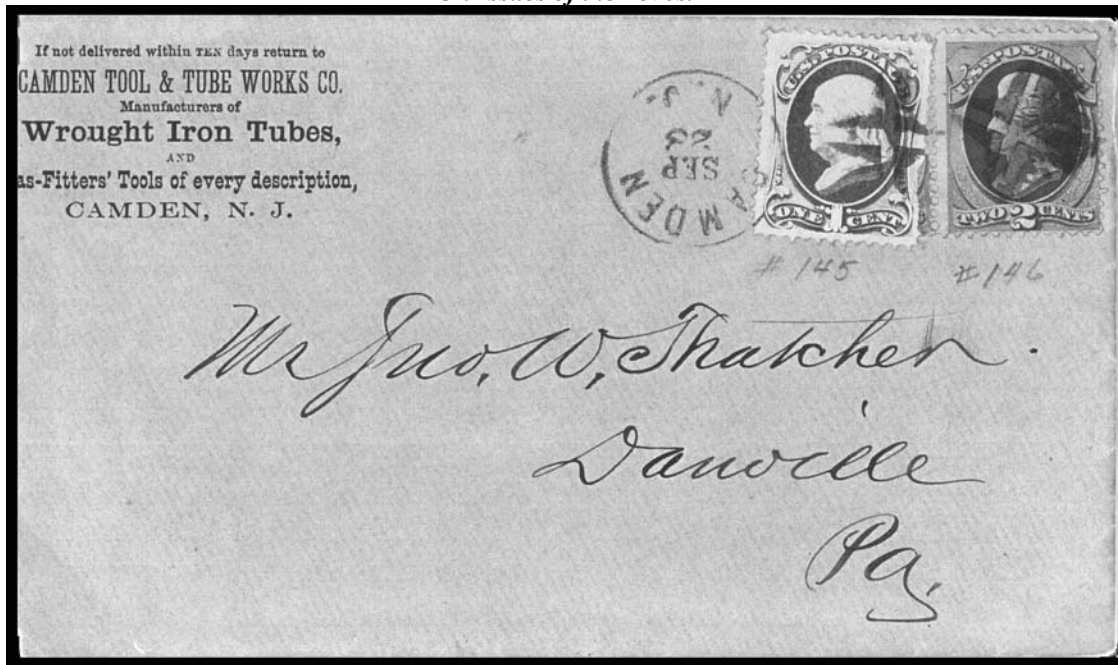 If not delivered within TEN days return to
CAMDEN TOOL & TUBE WORKS CO.
Manufacturers of
Wrought Iron Tubes,
AND
as-Fitters' Tools of every description,
CAMDEN, N. J.
CAMDEN
N. J.
SEP
23
U.S. POSTAGE
ONE 1 CENT
U.S. POSTAGE
TWO 2 CENTS
# 145
# 146
Mr Jno. W. Thatcher.
Danville
Pa.